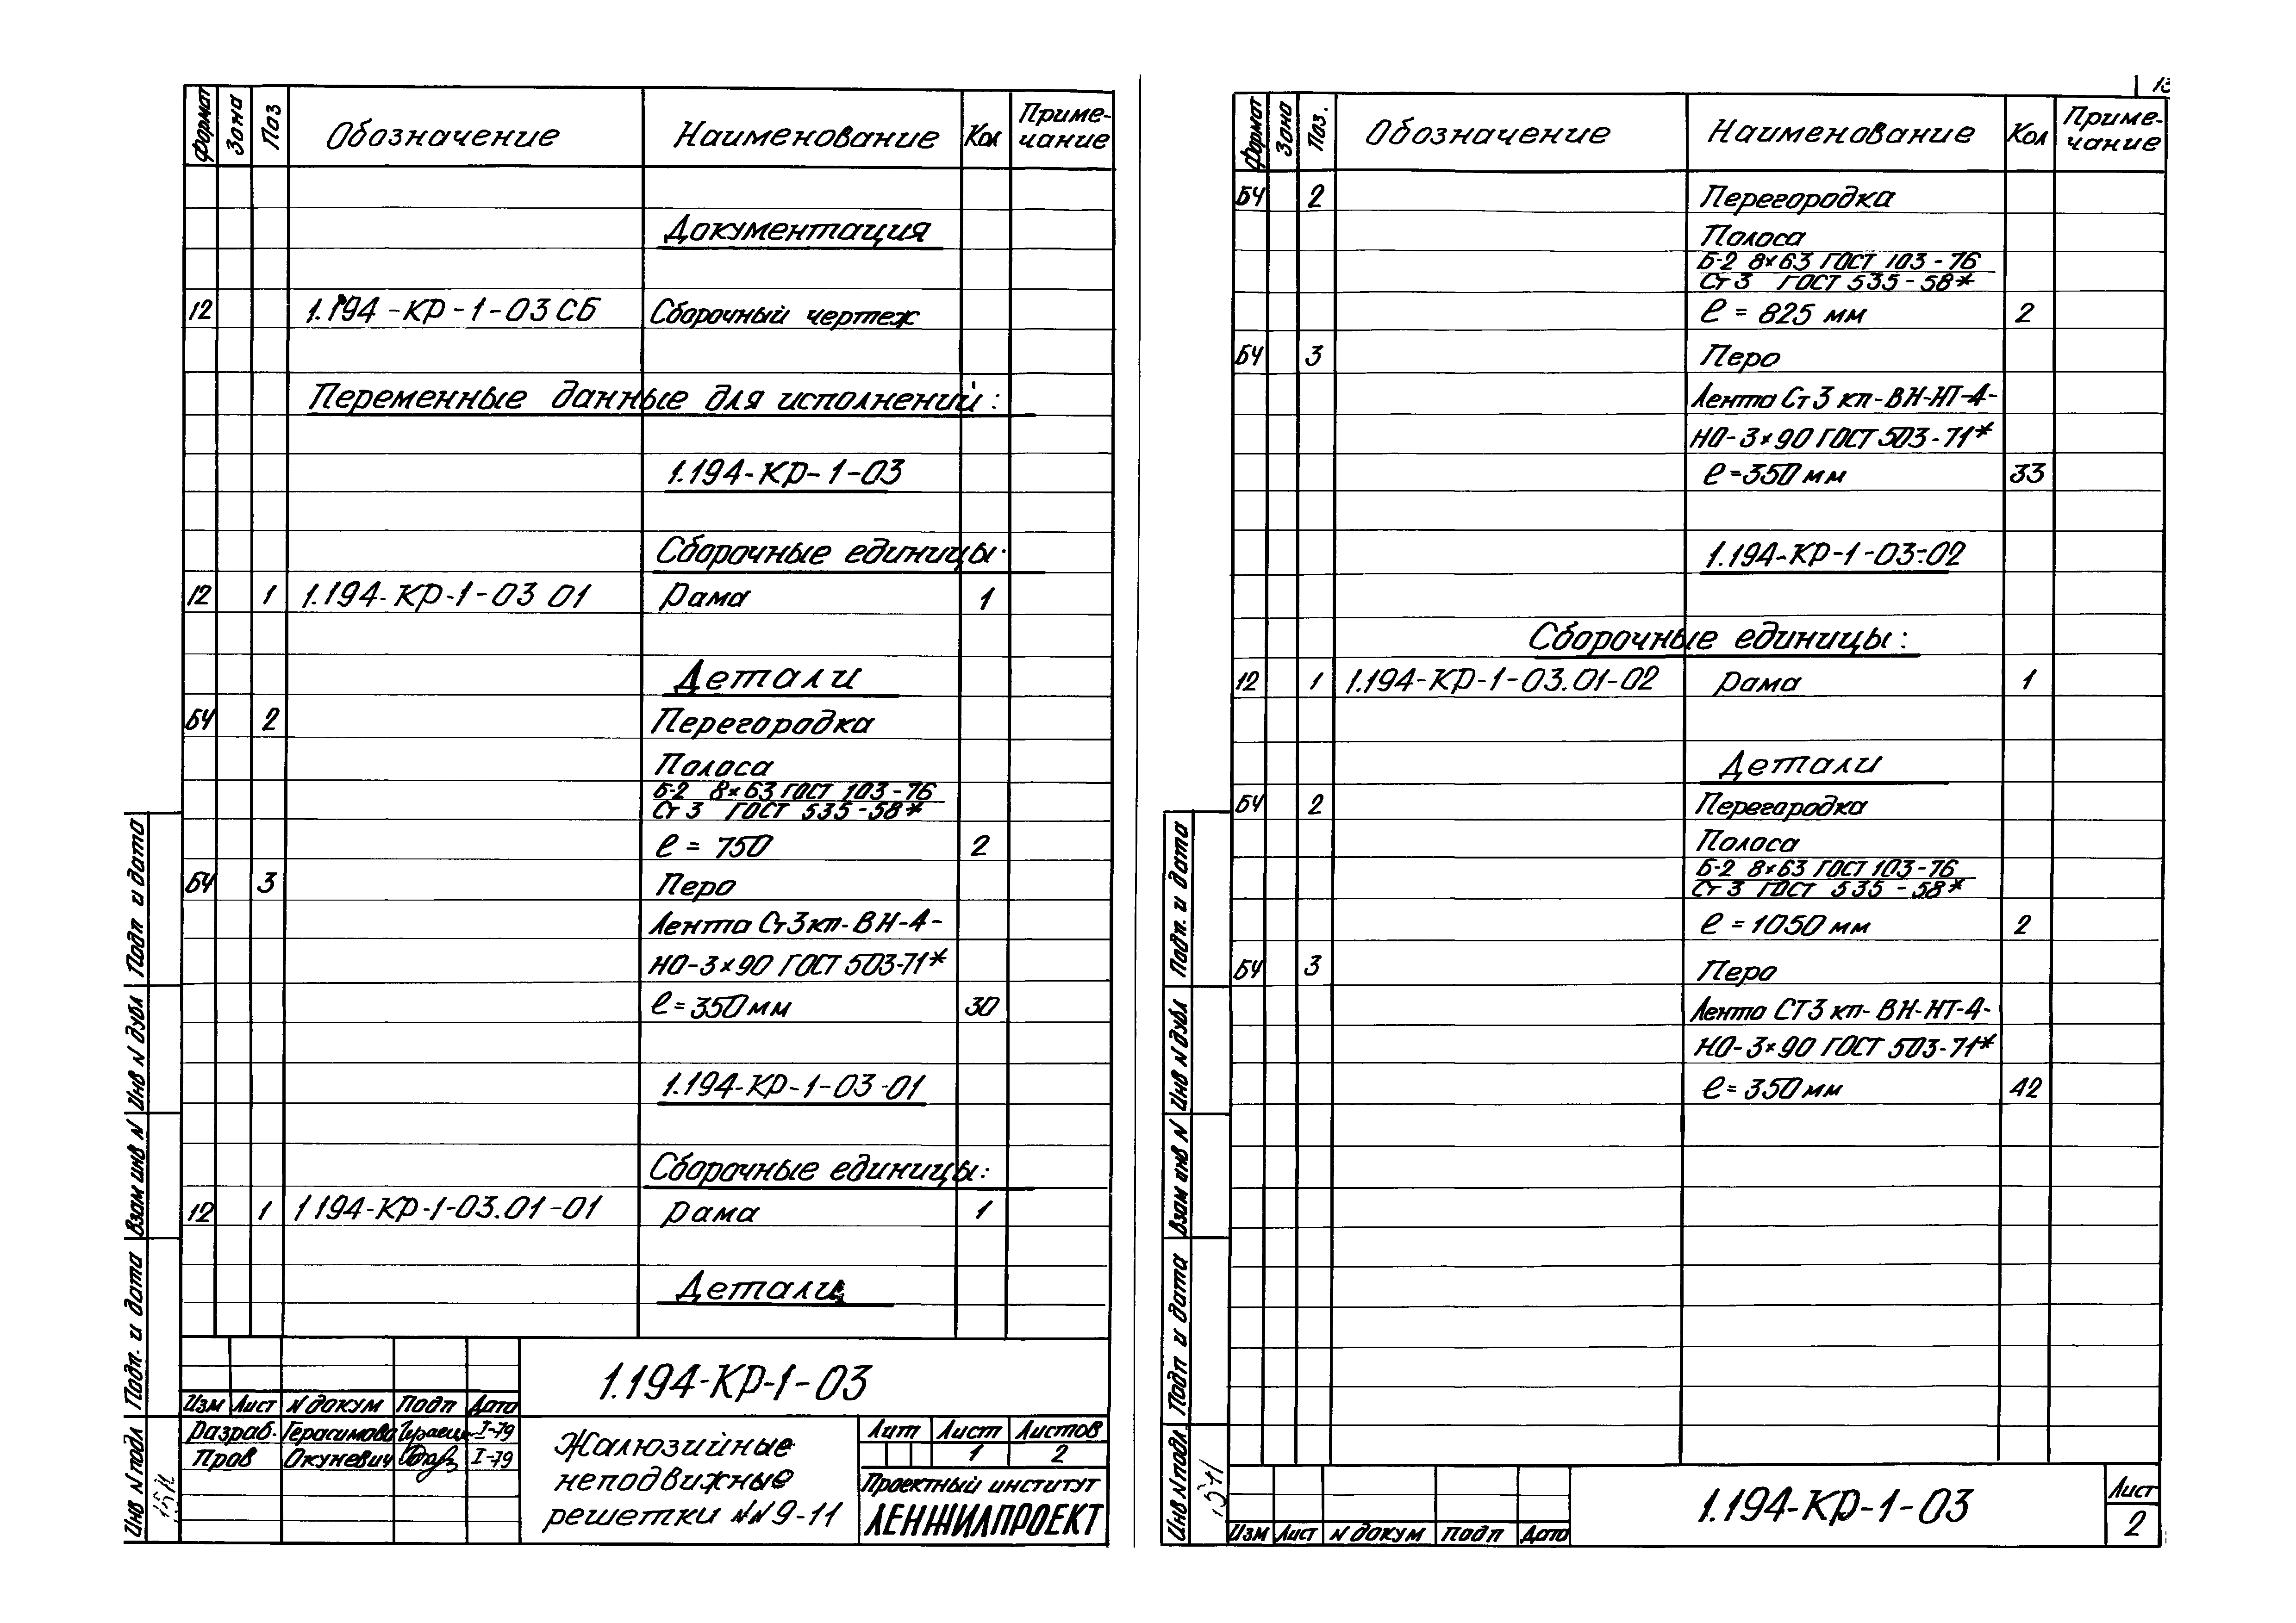 Формат Зона Поз Обозначение Наименование Кол Приме-
чание
Документация
12 1.194-КР-1-03 СБ Сборочный чертеж
Переменные данные для исполнений:
1.194-КР-1-03
Сборочные единицы
12 1 1.194-КР-1-03 01 Рама 1
Детали
БЧ 2 Перегородка
Полоса
Б-2 8×63 ГОСТ 103-76
Ст 3 ГОСТ 535-58*
ℓ = 750 2
БЧ 3 Перо
Лента Ст3кп-ВН-4-
НО-3×90 ГОСТ 503-71*
ℓ=350мм 30
1.194-КР-1-03-01
Сборочные единицы:
12 1 1 194-КР-1-03.01-01 Рама 1
Детали
1.194-КР-1-03
Изм Лист N докум Подп Дата
Разраб. Герасимова I-79
Пров Окуневич I-79
Жалюзийные
неподвижные
решетки NN 9-11
Лит Лист Листов
1 2
Проектный институт
ЛЕНЖИЛПРОЕКТ
Подп и дата
Инв N дубл
Взам инв N
Подп. и дата
Инв N подл
13
Формат Зона Поз. Обозначение Наименование Кол Приме-
чание
БЧ 2 Перегородка
Полоса
Б-2 8×63 ГОСТ 103-76
Ст 3 ГОСТ 535-58*
ℓ = 825 мм 2
БЧ 3 Перо
Лента Ст3 кп-ВН-НТ-4-
НО-3×90 ГОСТ 503-71*
ℓ=350мм 33
1.194-КР-1-03-02
Сборочные единицы:
12 1 1.194-КР-1-03.01-02 Рама 1
Детали
БЧ 2 Перегородка
Полоса
Б-2 8×63 ГОСТ 103-76
Ст 3 ГОСТ 535-58*
ℓ = 1050 мм 2
БЧ 3 Перо
Лента СТ3 кп-ВН-НТ-4-
НО-3×90 ГОСТ 503-71*
ℓ=350мм 42
Изм Лист N докум Подп Дата
1.194-КР-1-03
Лист
2
Подп. и дата
Инв N дубл
Взам инв N
Подп и дата
Инв N подл.